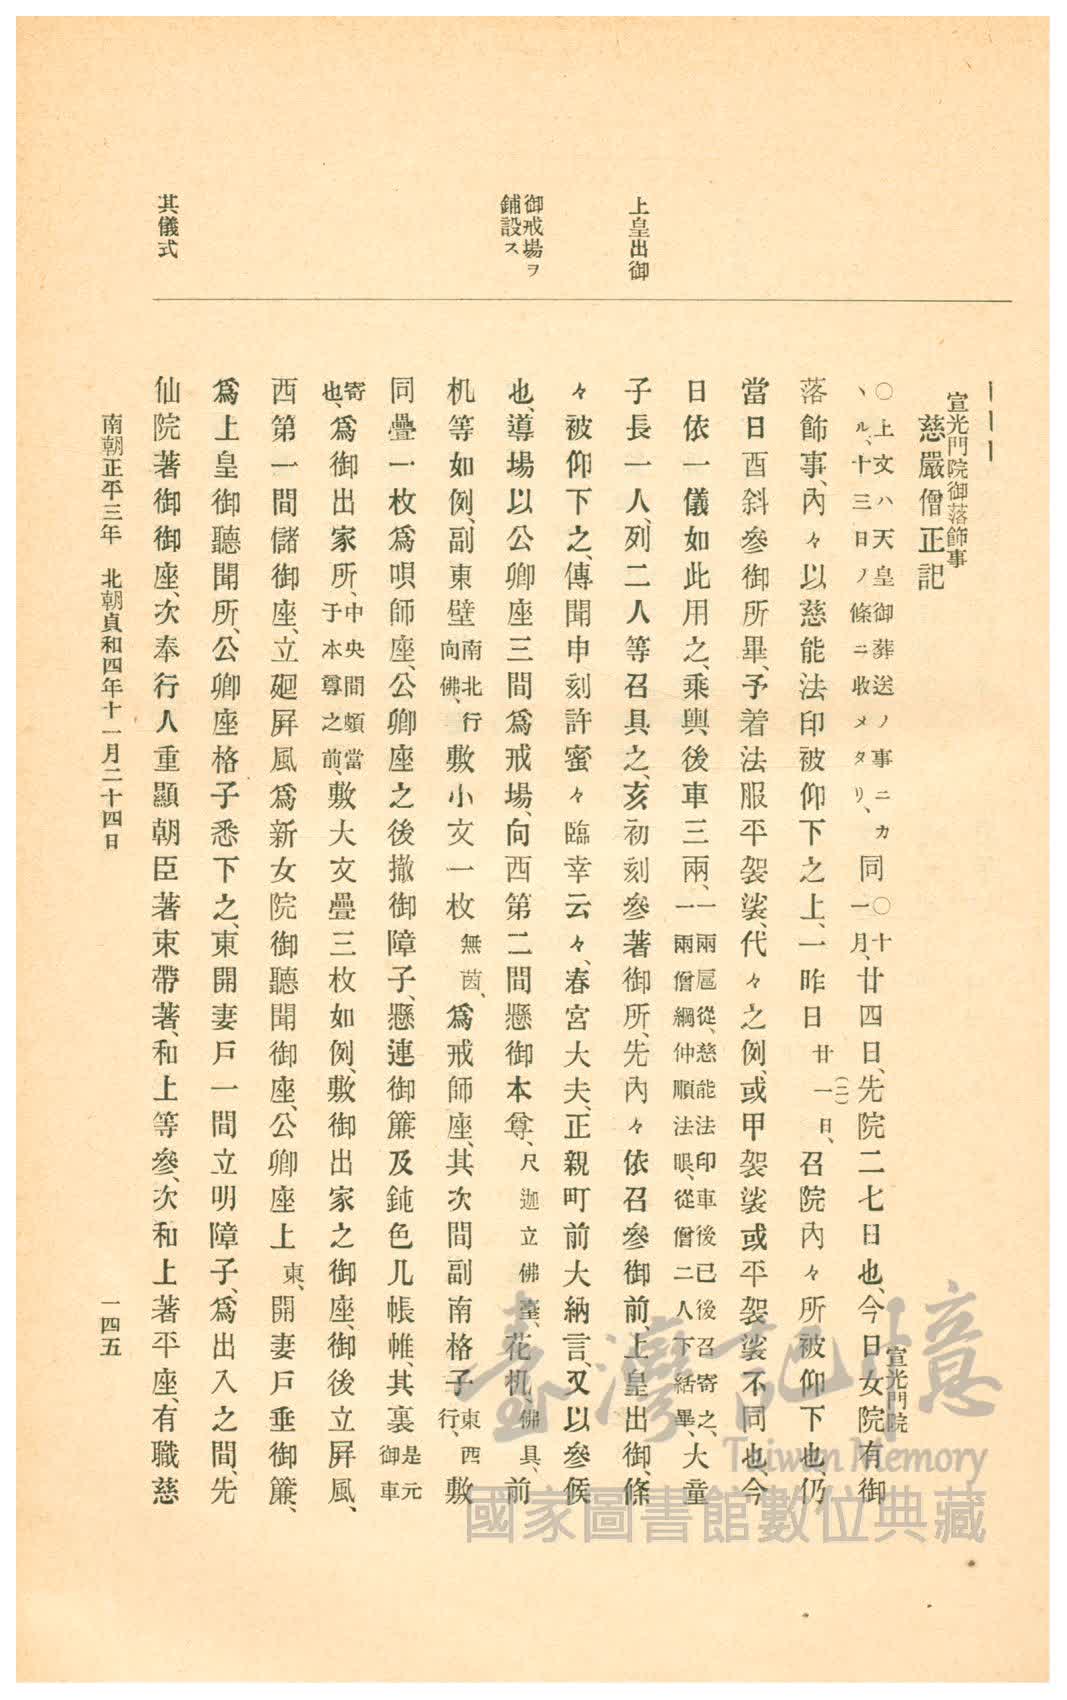 上皇出御
御戒場ヲ
鋪設ス
其儀式
宣光門院御落飾事
慈嚴僧正記
○上文ハ天皇御葬送ノ事ニカ
ヽル、十三日ノ條ニ收メタリ、同○十一月、廿四日、先院二七日也、今日女院宣光門院有御
落飾事、內々以慈能法印被仰下之上、一昨日廿一(二)日、召院內々所被仰下也、仍
當日酉斜參御所畢、予着法服平袈裟、代々之例、或甲袈裟或平袈裟不同也、今
日依一儀如此用之、乘輿、後車三兩、一兩扈從、慈能法印車後已後召寄之、一兩僧綱仲順法眼、從僧二人下結畢、大童
子長一人、列二人等召具之、亥初刻參著御所、先內々依召參御前、上皇出御、條
々被仰下之、傳聞申刻許蜜々臨幸云々、春宮大夫、正親町前大納言、又以參候
也、導場以公卿座三間爲戒場、向西第二間懸御本尊、尺迦立佛臺、花机、佛具、前
机等如例、副東壁南北行向佛、敷小文一枚無茵、爲戒師座、其次間副南格子東西行、敷
同疊一枚爲唄師座、公卿座之後撤御障子、懸連御簾及鈍色几帳帷、其裏是元御車
寄也、爲御出家所、中央間頗當于本尊之前、敷大文疊三枚如例、敷御出家之御座、御後立屛風、
西第一間儲御座、立廻屛風爲新女院御聽聞御座、公卿座上東、開妻戶垂御簾、
爲上皇御聽聞所、公卿座格子悉下之、東開妻戶一間立明障子、爲出入之間、先
仙院著御御座、次奉行人重顯朝臣著束帶著、和上等參、次和上著平座、有職慈
南朝正平三年 北朝貞和四年十一月二十四日
一四五
臺灣記憶
Taiwan Memory
國家圖書館數位典藏